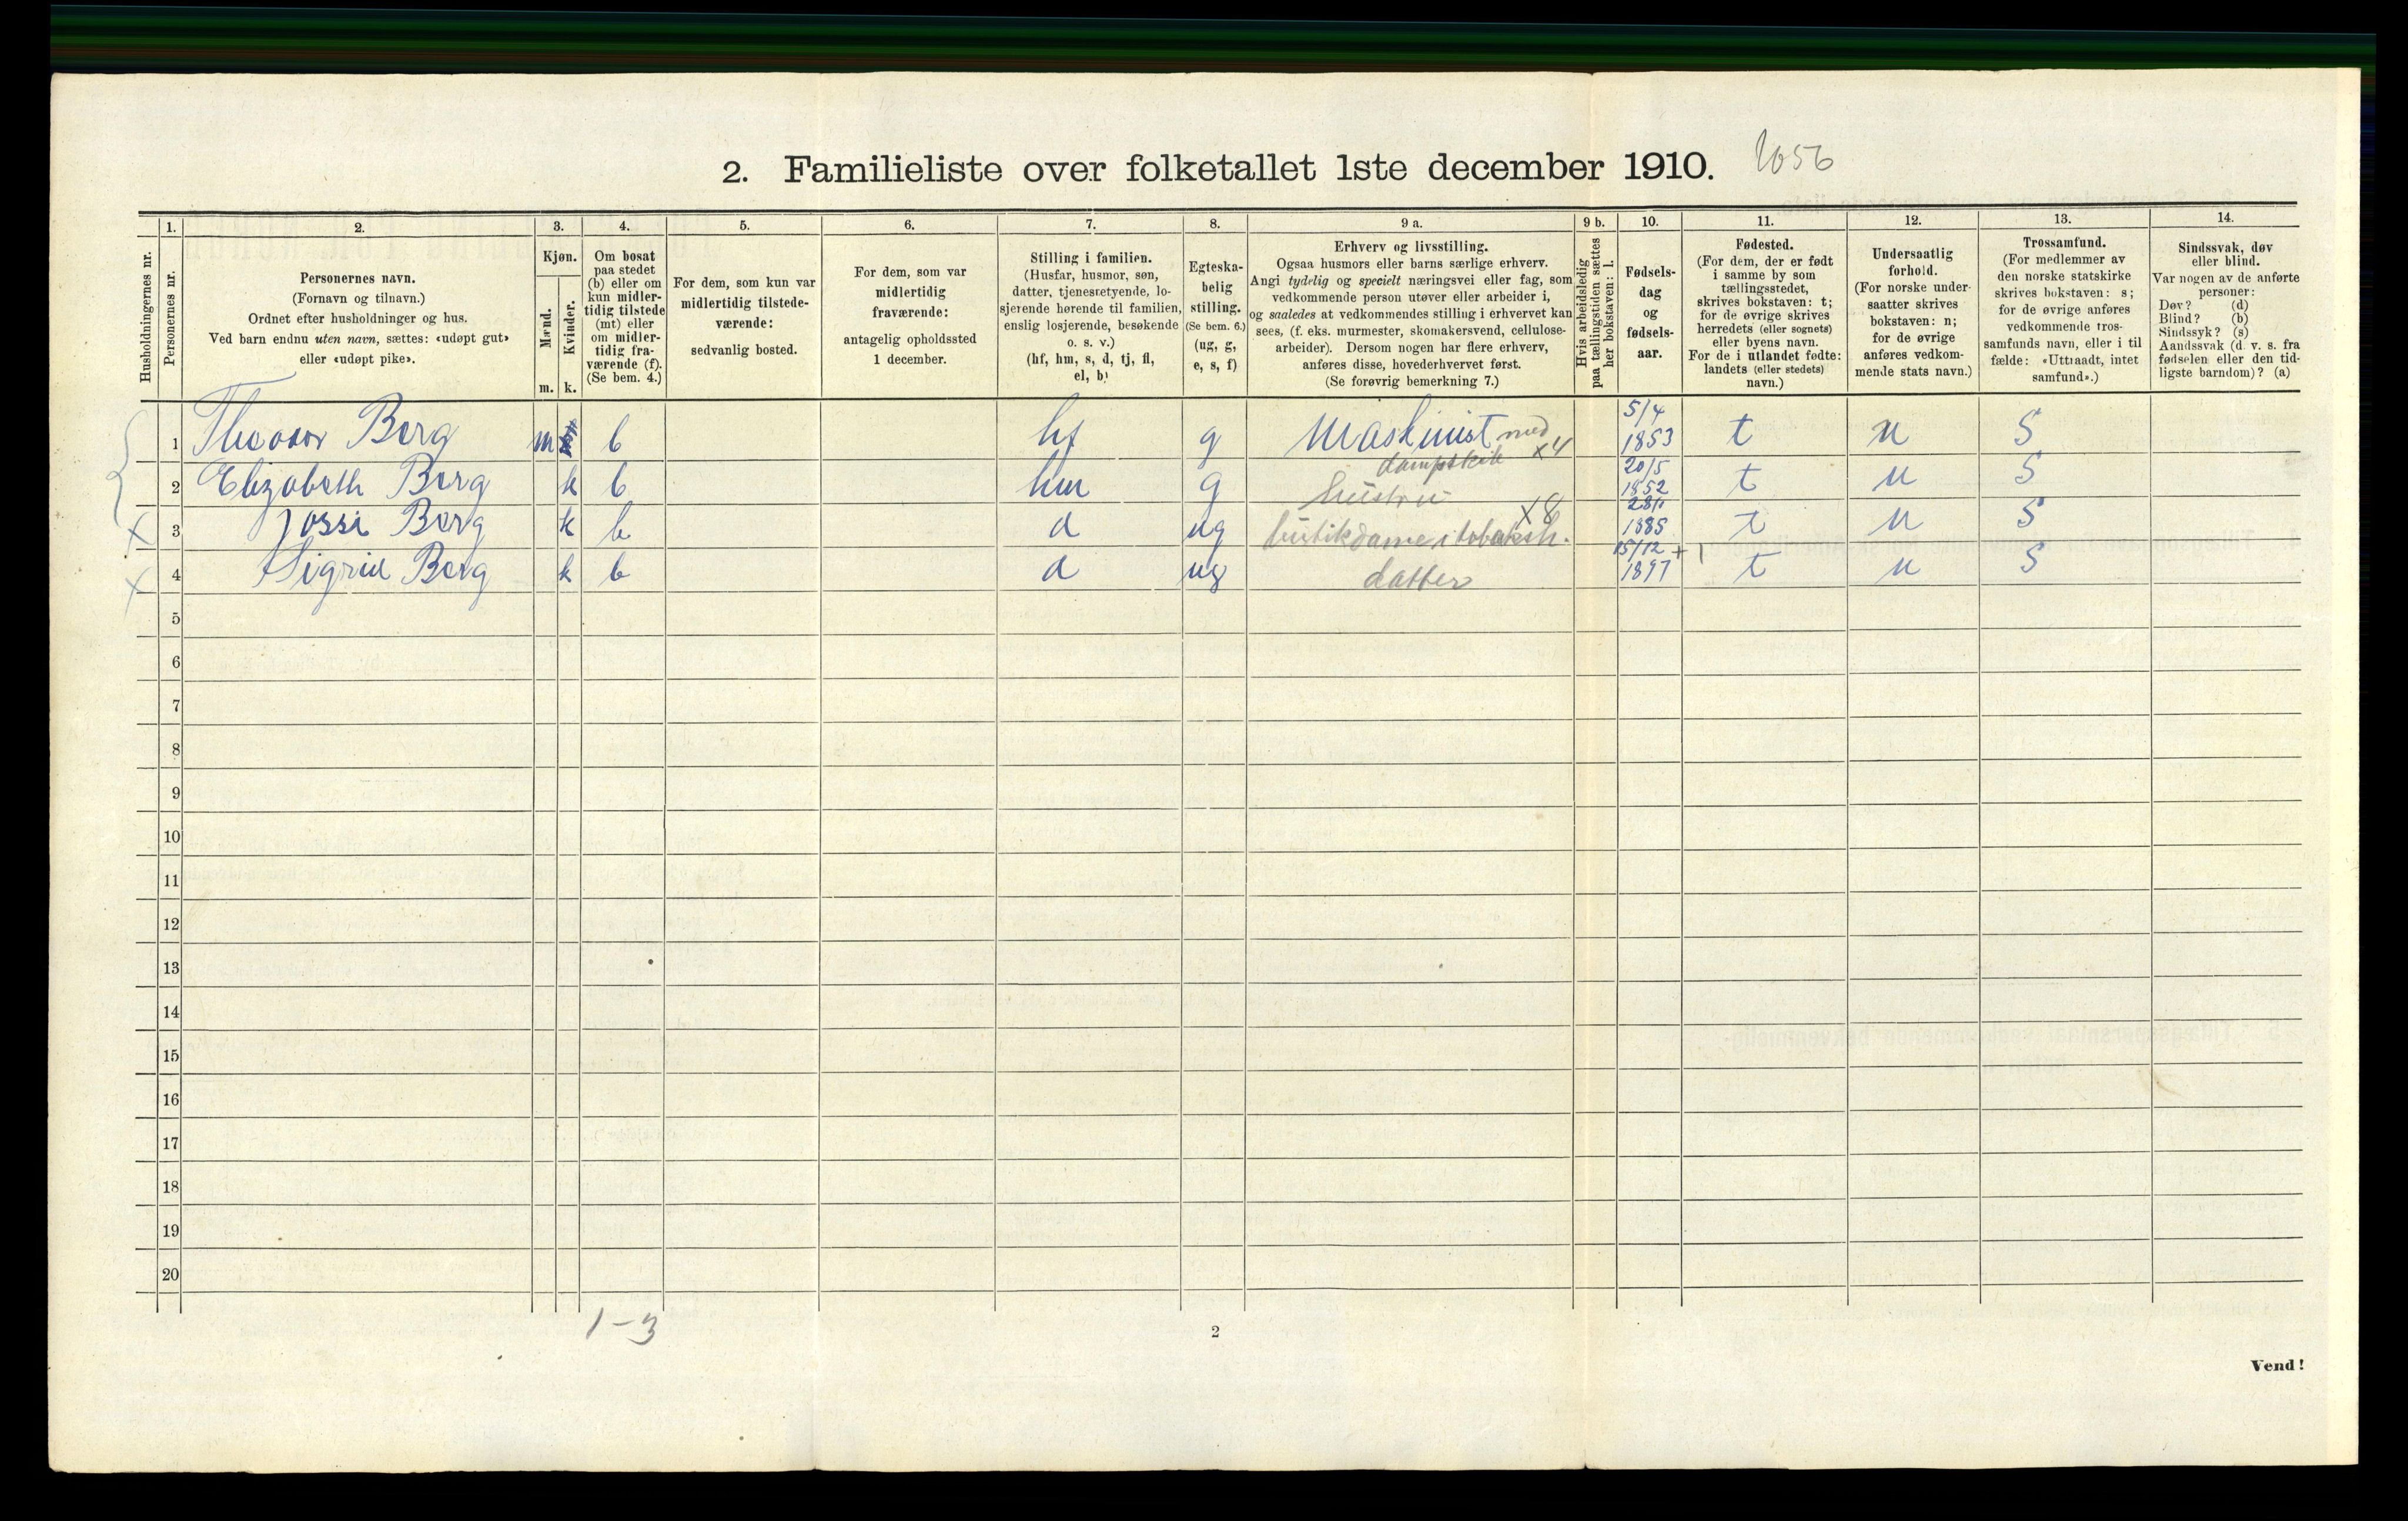 2. Familieliste over folketallet 1ste december 1910. 1056
Husholdningernes nr.
1.
Personernes nr.
2.
Personernes navn.
(Fornavn og tilnavn.)
Ordnet efter husholdninger og hus.
Ved barn endnu uten navn, sættes: «udøpt gut»
eller «udøpt pike».
3.
Kjøn.
Mænd.
Kvinder.
m. k.
4.
Om bosat
paa stedet
(b) eller om
kun midler-
tidig tilstede
(mt) eller
om midler-
tidig fra-
værende (f).
(Se bem. 4.)
5.
For dem, som kun var
midlertidig tilstede-
værende:
sedvanlig bosted.
6.
For dem, som var
midlertidig
fraværende:
antagelig opholdssted
1 december.
7.
Stilling i familien.
(Husfar, husmor, søn,
datter, tjenestetyende, lo-
sjerende hørende til familien,
enslig losjerende, besøkende
o. s. v.)
(hf, hm, s, d, tj, fl,
el, b)
8.
Egteska-
belig
stilling.
(Se bem. 6.)
(ug, g,
e, s, f)
9 a.
Erhverv og livsstilling.
Ogsaa husmors eller barns særlige erhverv.
Angi tydelig og specielt næringsvei eller fag, som
vedkommende person utøver eller arbeider i,
og saaledes at vedkommendes stilling i erhvervet kan
sees, (f. eks. murmester, skomakersvend, cellulose-
arbeider). Dersom nogen har flere erhverv,
anføres disse, hovederhvervet først.
(Se forøvrig bemerkning 7.)
9 b.
Hvis arbeidsledig
paa tællingstiden sættes
her bokstaven: l.
10.
Fødsels-
dag
og
fødsels-
aar.
11.
Fødested.
(For dem, der er født
i samme by som
tællingsstedet,
skrives bokstaven: t;
for de øvrige skrives
herredets (eller sognets)
eller byens navn.
For de i utlandet fødte:
landets (eller stedets)
navn.)
12.
Undersaatlig
forhold.
(For norske under-
saatter skrives
bokstaven: n;
for de øvrige
anføres vedkom-
mende stats navn.)
13.
Trossamfund.
(For medlemmer av
den norske statskirke
skrives bokstaven: s;
for de øvrige anføres
vedkommende tros-
samfunds navn, eller i til-
fælde: «Uttraadt, intet
samfund».)
14.
Sindssvak, døv
eller blind.
Var nogen av de anførte
personer:
Døv? (d)
Blind? (b)
Sindssyk? (s)
Aandssvak (d. v. s. fra
fødselen eller den tid-
ligste barndom)? (a)
1 Theodor Berg m b hf g Maskinist med dampskib x4 5/4 1853 t n S
2 Elizabeth Berg k b hm g hustru 20/5 1852 t n S
X 3 Jossi Berg k b d ug butikdame i tobaksh. X8 1885 t n S
X 4 Sigrid Berg k b d ug datter 15/12 1897 + 1 t n S
5
6
7
8
9
10
11
12
13
14
15
16
17
18
19
20
1-3
2
Vend!